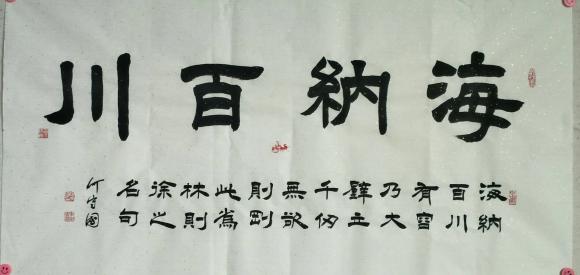 海納百川
海納
百川
有容
乃大
壁立
千仞
無欲
則剛
此為
林則
徐之
名句